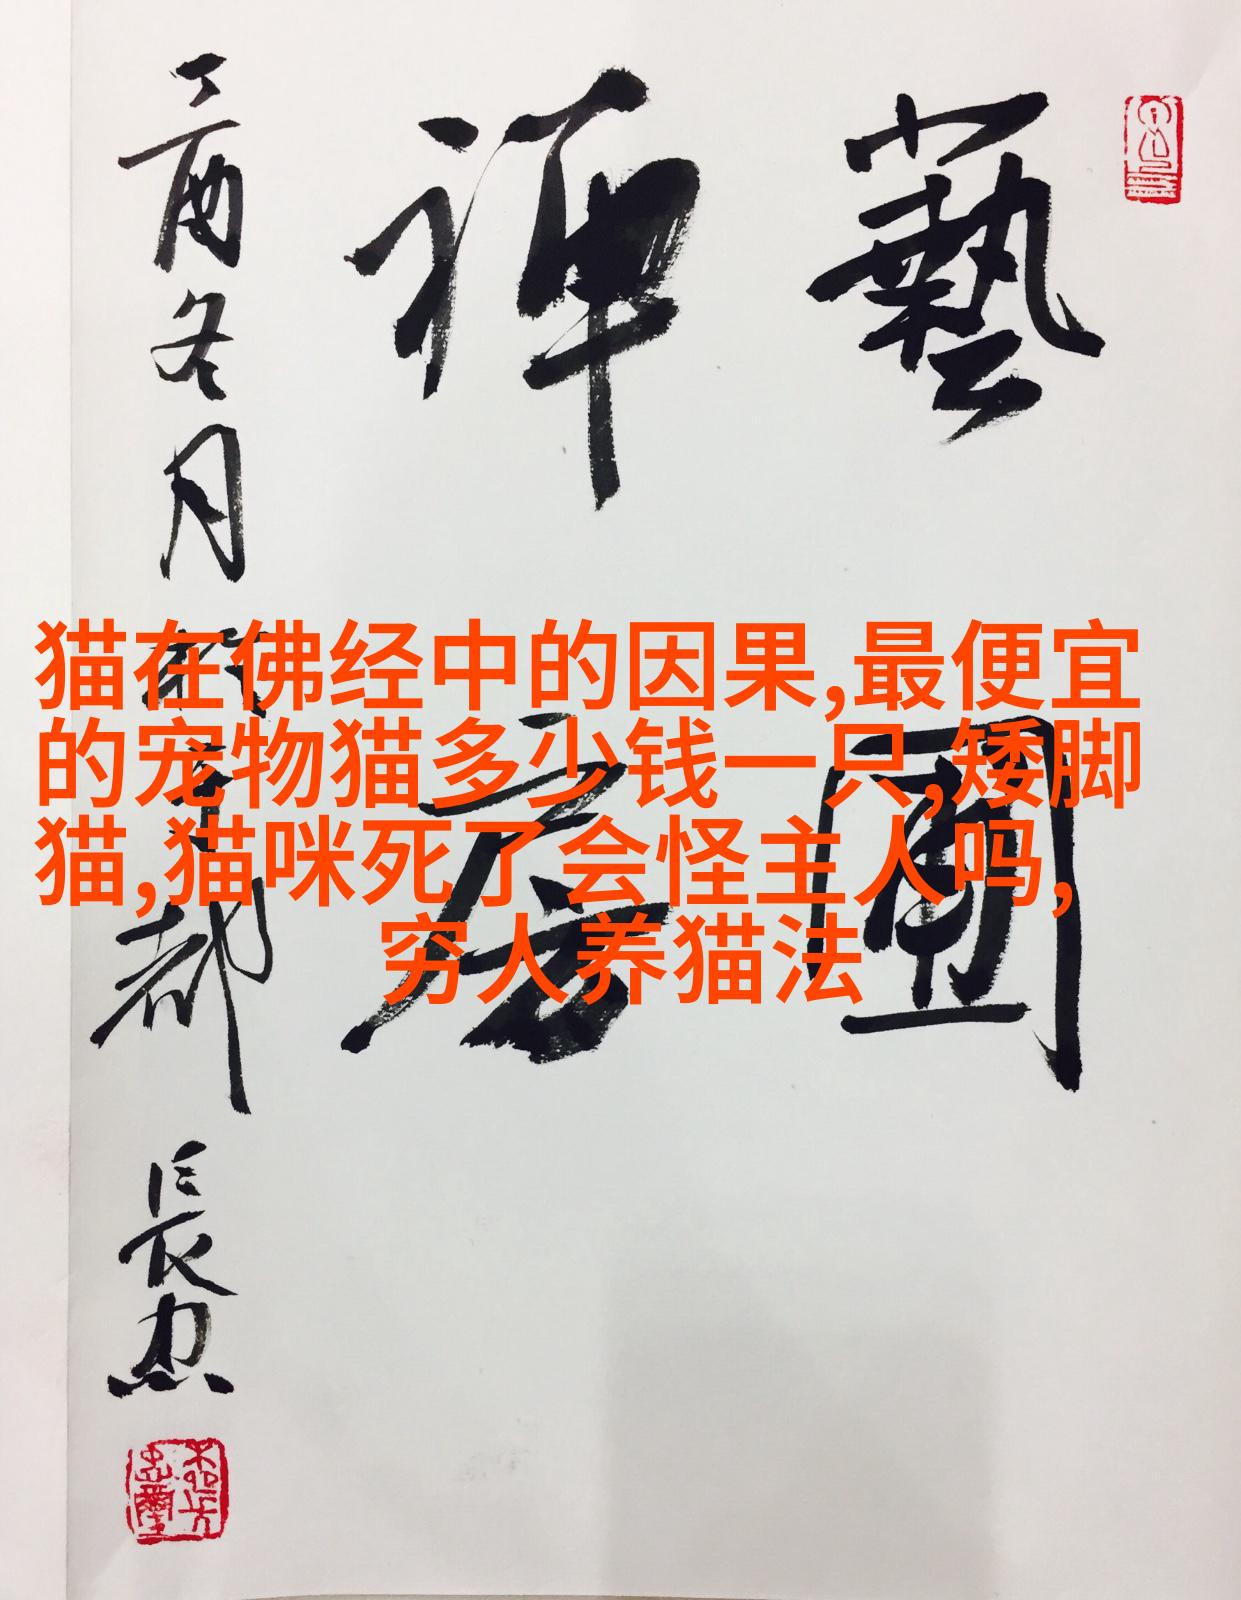 猫在佛经中的因果,最便宜
的宠物猫多少钱一只,矮脚
猫,猫咪死了会怪主人吗,
穷人养猫法
藝圃
禅
丁酉冬月
都
長忠